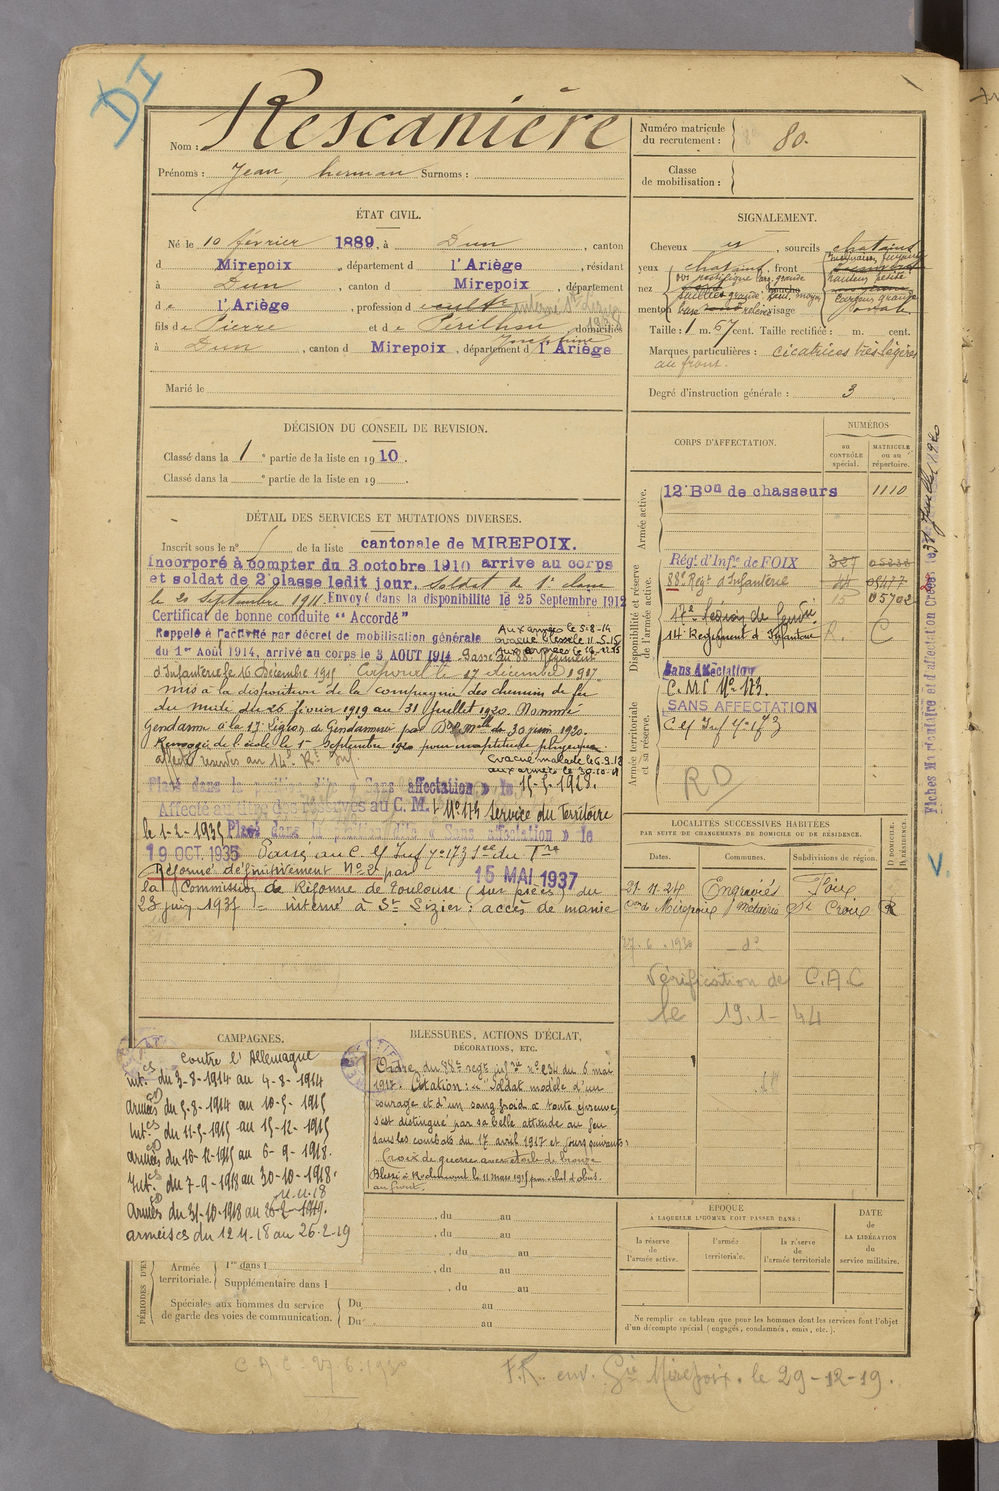 DI
Nom : Rescanière
Prénoms : Jean, herman Surnoms :
Numéro matricule du recrutement : 80.
Classe de mobilisation :
ÉTAT CIVIL.
Né le 10 février 1889, à Dun, canton
d Mirepoix, département d l'Ariège, résidant
à Dun, canton d Mirepoix, département
d e l'Ariège, profession d e cultr interné St Lizier
fils de Pierre et d e Perilhou Josephine, domiciliés
à Dun, canton d Mirepoix, département d l'Ariège
Marié le
SIGNALEMENT.
Cheveux sourcils chatains
yeux chatains, front
nez
menton visage
Taille : 1 m. 57 cent. Taille rectifiée : m. cent.
Marques particulières : cicatrices très légères
au front.
Degré d'instruction générale : 3
DÉCISION DU CONSEIL DE REVISION.
Classé dans la 1e partie de la liste en 1910.
Classé dans la e partie de la liste en 19 .
DÉTAIL DES SERVICES ET MUTATIONS DIVERSES.
Inscrit sous le n° de la liste cantonale de MIREPOIX.
Incorporé à compter du 3 octobre 1910 arrivé au corps
et soldat de 2e classe ledit jour. Soldat de 1e classe
le 20 Septembre 1911. Envoyé dans la disponibilité le 25 Septembre 1912
Certificat de bonne conduite "Accordé"
Aux armées le 5-8-14
Rappelé à l'activité par décret de mobilisation générale évacué blessé le 11-5-15
du 1er Août 1914, arrivé au corps le 3 AOUT 1914. Passé au 88e Régiment
Aux armées le 16-12-15
d'Infanterie le 16 Décembre 1915 Caporal le 17 décembre 1917
mis à la disposition de la compagnie des chemins de fer
du midi du 26 février 1919 au 31 Juillet 1920. Nommé
Gendarme à la 17e Légion de Gendarmerie par Don Melle du 30 juin 1920.
de l'école le 1er Septembre 1920 pour inaptitude physique
affecté réserves au 14e Rt Inf. évacué malade le 6-9-18
aux armées le 30-10-18
Placé dans la position dite « Sans affectation » le 15-5-1928.
Affecté au titre des réserves au C. M. I No 173 Service du Territoire
le 1-2-1935 Placé dans la position dite « Sans affectation » le
19 OCT. 1935 Passé au C. M Inf no 173 Sce du Tre
Réformé définitivement No 2 par 15 MAI 1937
la Commission de Réforme de Toulouse (sur pièces) du
23 juin 1937 = interné à St Lizier : accès de manie
CORPS D'AFFECTATION.
NUMÉROS
au CONTRÔLE spécial.
MATRICULE ou au répertoire.
Armée active.
12e Bon de chasseurs 1110
Disponibilité et réserve de l'armée active.
Régt d'Infie de FOIX
88e Régt d'Infanterie
15 05702
17e Légion de Gendie
14e Régiment d'Infanterie R. C
Sans Affectation
Armée territoriale et sa réserve.
C.M.I No 173.
SANS AFFECTATION
C M Inf no 173
RD
Fiches Matriculaire et d'affectation Créées le 31 Juillet 1920
LOCALITÉS SUCCESSIVES HABITÉES
PAR SUITE DE CHANGEMENTS DE DOMICILE OU DE RÉSIDENCE.
Dates. Communes. Subdivisions de région. D DOMICILE. R RÉSIDENCE.
21-11-24 Engraviès Foix
con de Mirepoix / Métairie Ste Croix R
27-6-1930 — do
Vérification de C.A.C
le 19-1-44
CAMPAGNES.
contre l'Allemagne
Intes du 3-8-1914 au 4-8-1914
armées du 5-8-1914 au 10-5-1915
Intes du 11-5-1915 au 15-12-1915
armées du 16-12-1915 au 6-9-1918.
Intes du 7-9-1918 au 30-10-1918.
11.11.18
Armées du 31-10-1918 au 26-2-1919.
armeisces du 12-11-18 au 26-2-19
BLESSURES, ACTIONS D'ÉCLAT,
DÉCORATIONS, ETC.
Ordre du 88e regt infie no 234 du 6 mai
1917. Citation : "Soldat modèle d'un
courage et d'un sang froid à toute épreuve,
s'est distingué par sa belle attitude au feu
dans les combats du 17 avril 1917 et jours suivants"
Croix de guerre avec étoile de bronze
Blessé à Roclincourt le 11 mars 1915 par éclat d'obus.
au front.
, du au
, du au
, du au
PÉRIODES D'EX
Armée territoriale. 1re dans l , du au
Supplémentaire dans l , du au
Spéciales aux hommes du service de garde des voies de communication. Du au
Du au
ÉPOQUE
A LAQUELLE L'HOMME DOIT PASSER DANS :
la réserve de l'armée active.
l'armée territoriale.
la réserve de l'armée territoriale
DATE de LA LIBÉRATION du service militaire.
Ne remplir ce tableau que pour les hommes dont les services font l'objet
d'un décompte spécial (engagés, condamnés, omis, etc.).
C.A.C. 27.6.1930
F.R. env. Gie Mirepoix. le 29-12-19.